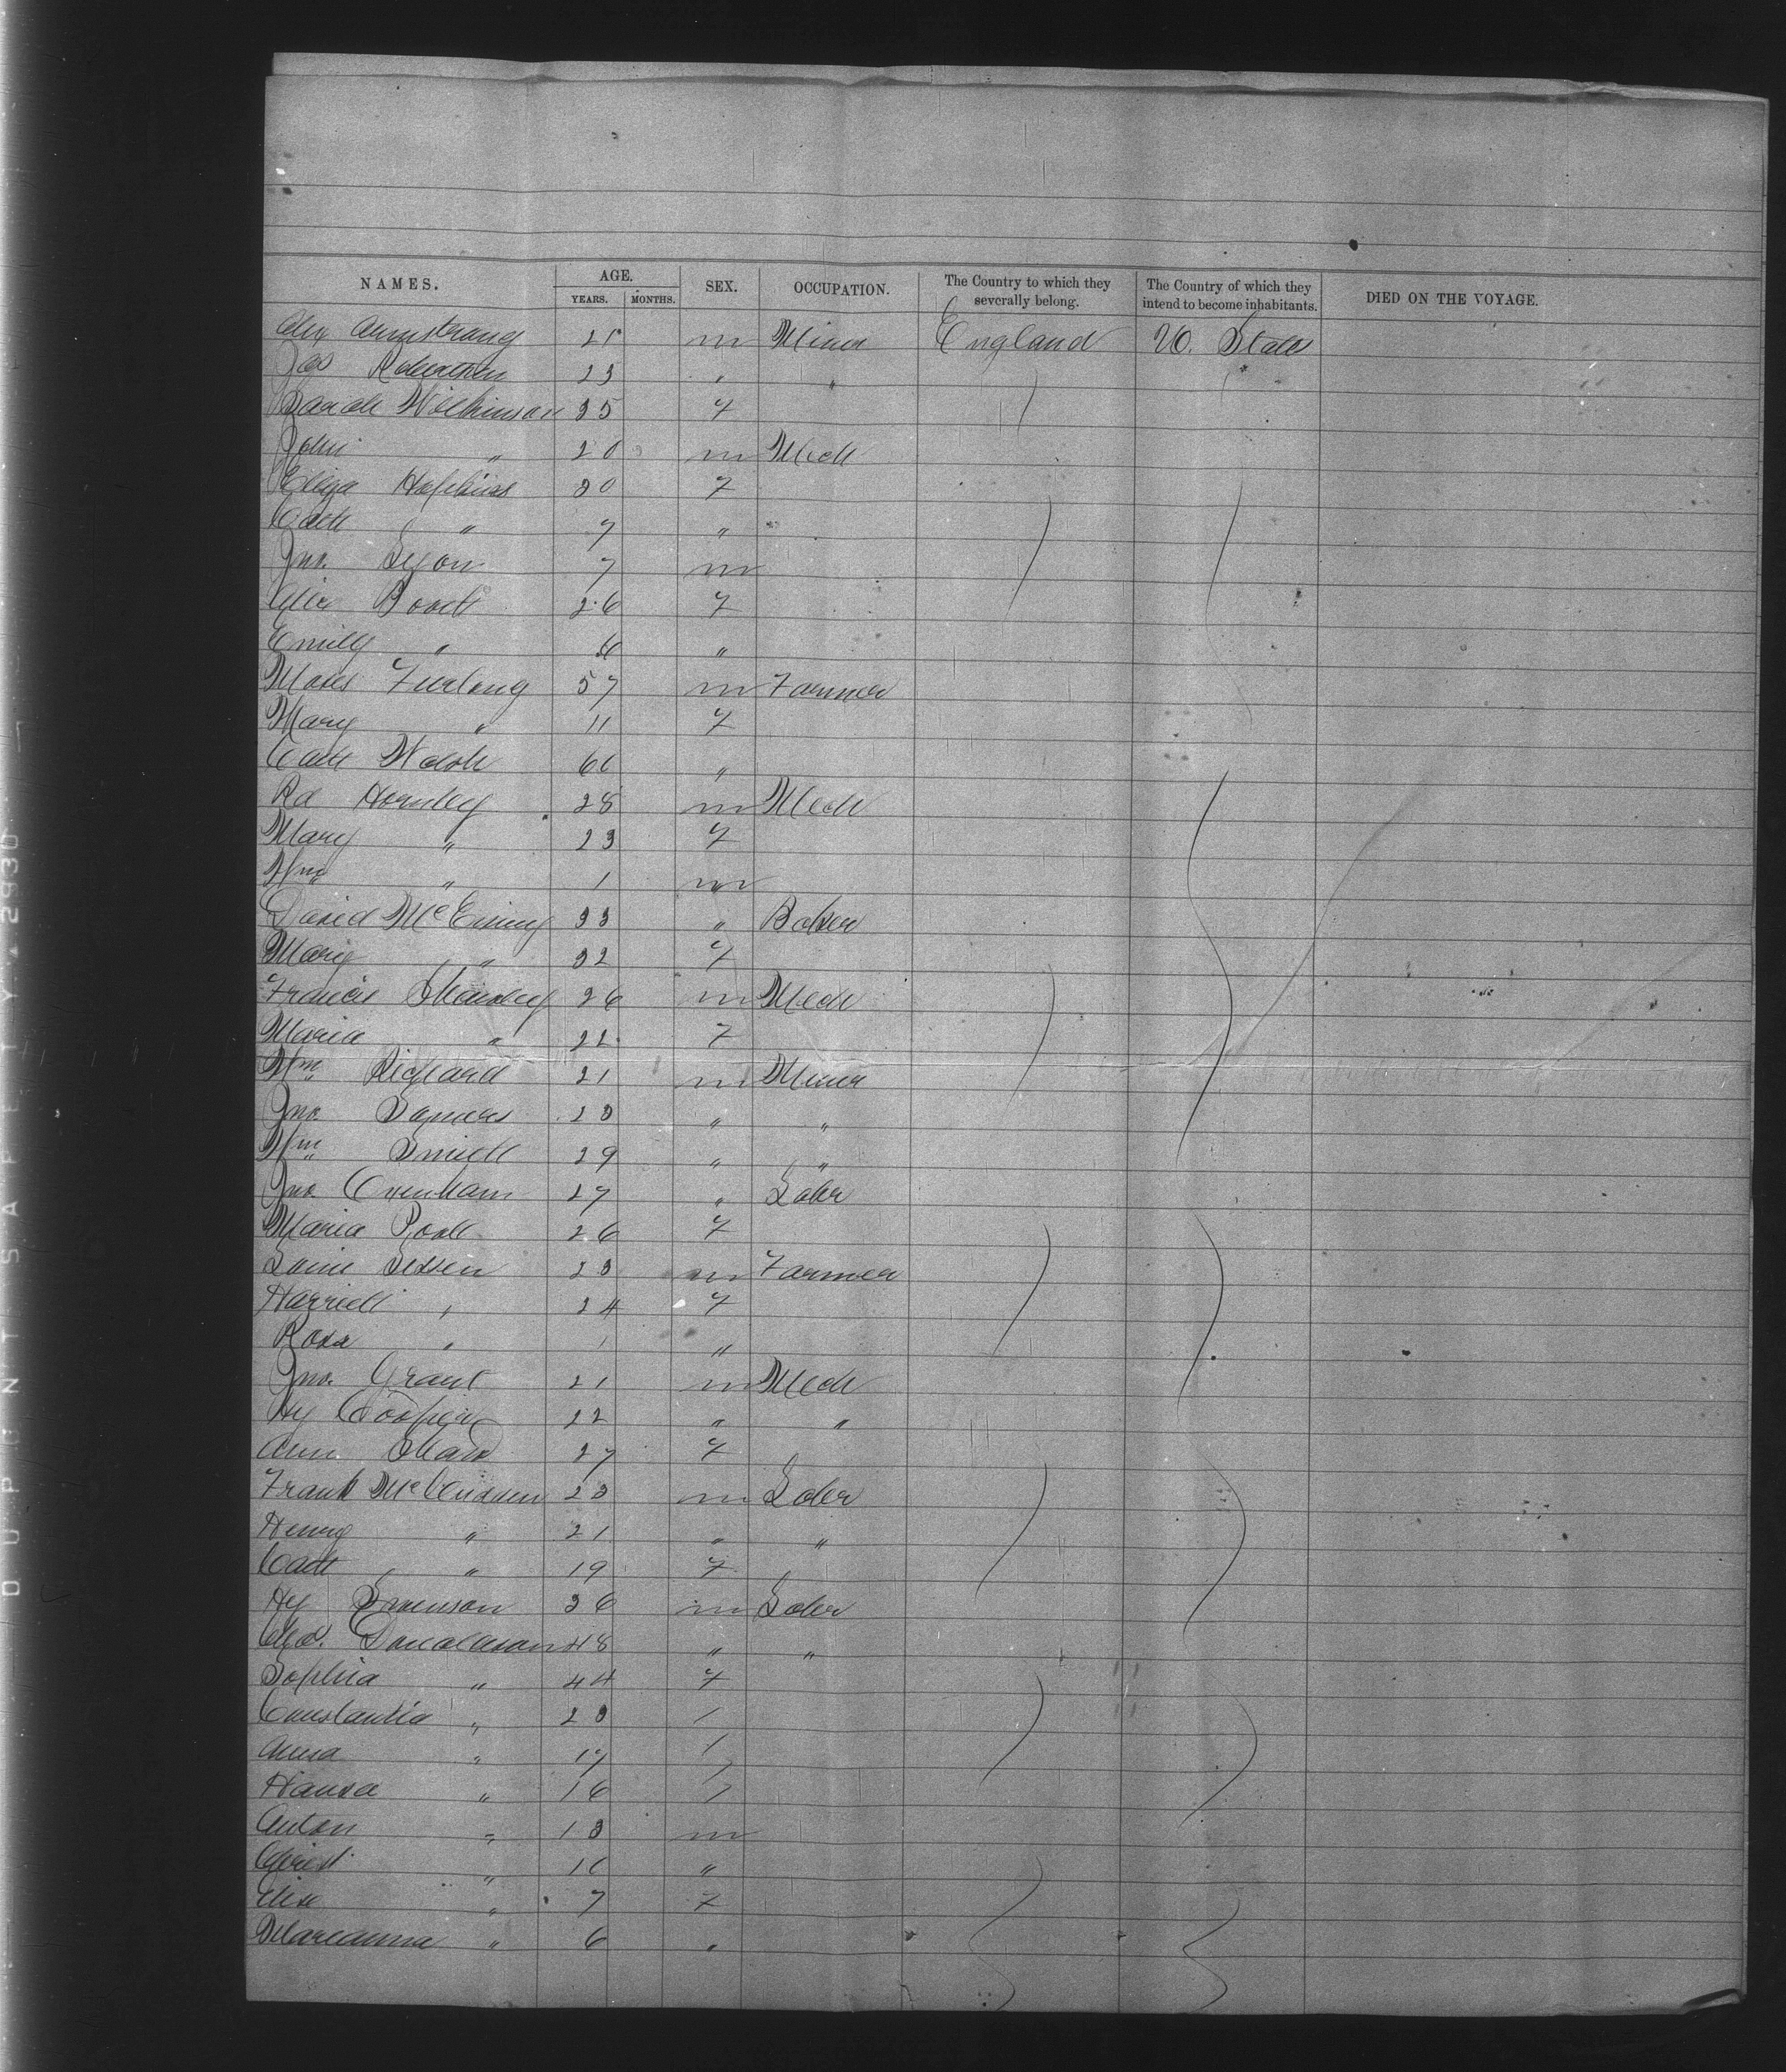 NAMES. AGE. SEX. OCCUPATION. The Country to which they severally belong. The Country of which they intend to become inhabitants. DIED ON THE VOYAGE.
YEARS. MONTHS.
Alex Armstrong 25 m Miner England U. States
Jas Robertson 23 " "
Sarah Wilkinson 35 F
John " 20 m Mech
Eliza Hopkins 30 F
Cath " 7 "
Jno. Lyon 7 m
Alice Booth 26 F
Emily " "
Moses Furlong 57 m Farmer
Mary " 11 F
Cath Walsh 60 "
Rd Hornley 28 m Mech
Mary " 23 F
Wm " 1 m
David 33 " Baker
Mary " 32 F
Francis 26 m Mech
Maria " 22 F
Wm 21 m Miner
Jno. Somers 23 " "
Wm Smith 29 " "
Jno. Oxenham 27 " Labr
Maria Poole 26 F
23 m Farmer
Harriett " 24 F
Rosa " 1 "
Jno. Grant 21 m Mech
Hy Cooper 22 " "
Ann Shaw 27 F
Frank 23 m Labr
Henry " 21 " "
Cath " 19 F
Hy Swenson 36 m Labr
Donaldson 48 " "
Sophia " 44 F
Constantia " 23
Anna " 17
Hansa " 16
Anton " 13 m
Christ " 10 "
Elise " 7 F
Mareanna " 6 "
DUPONT SAFETY